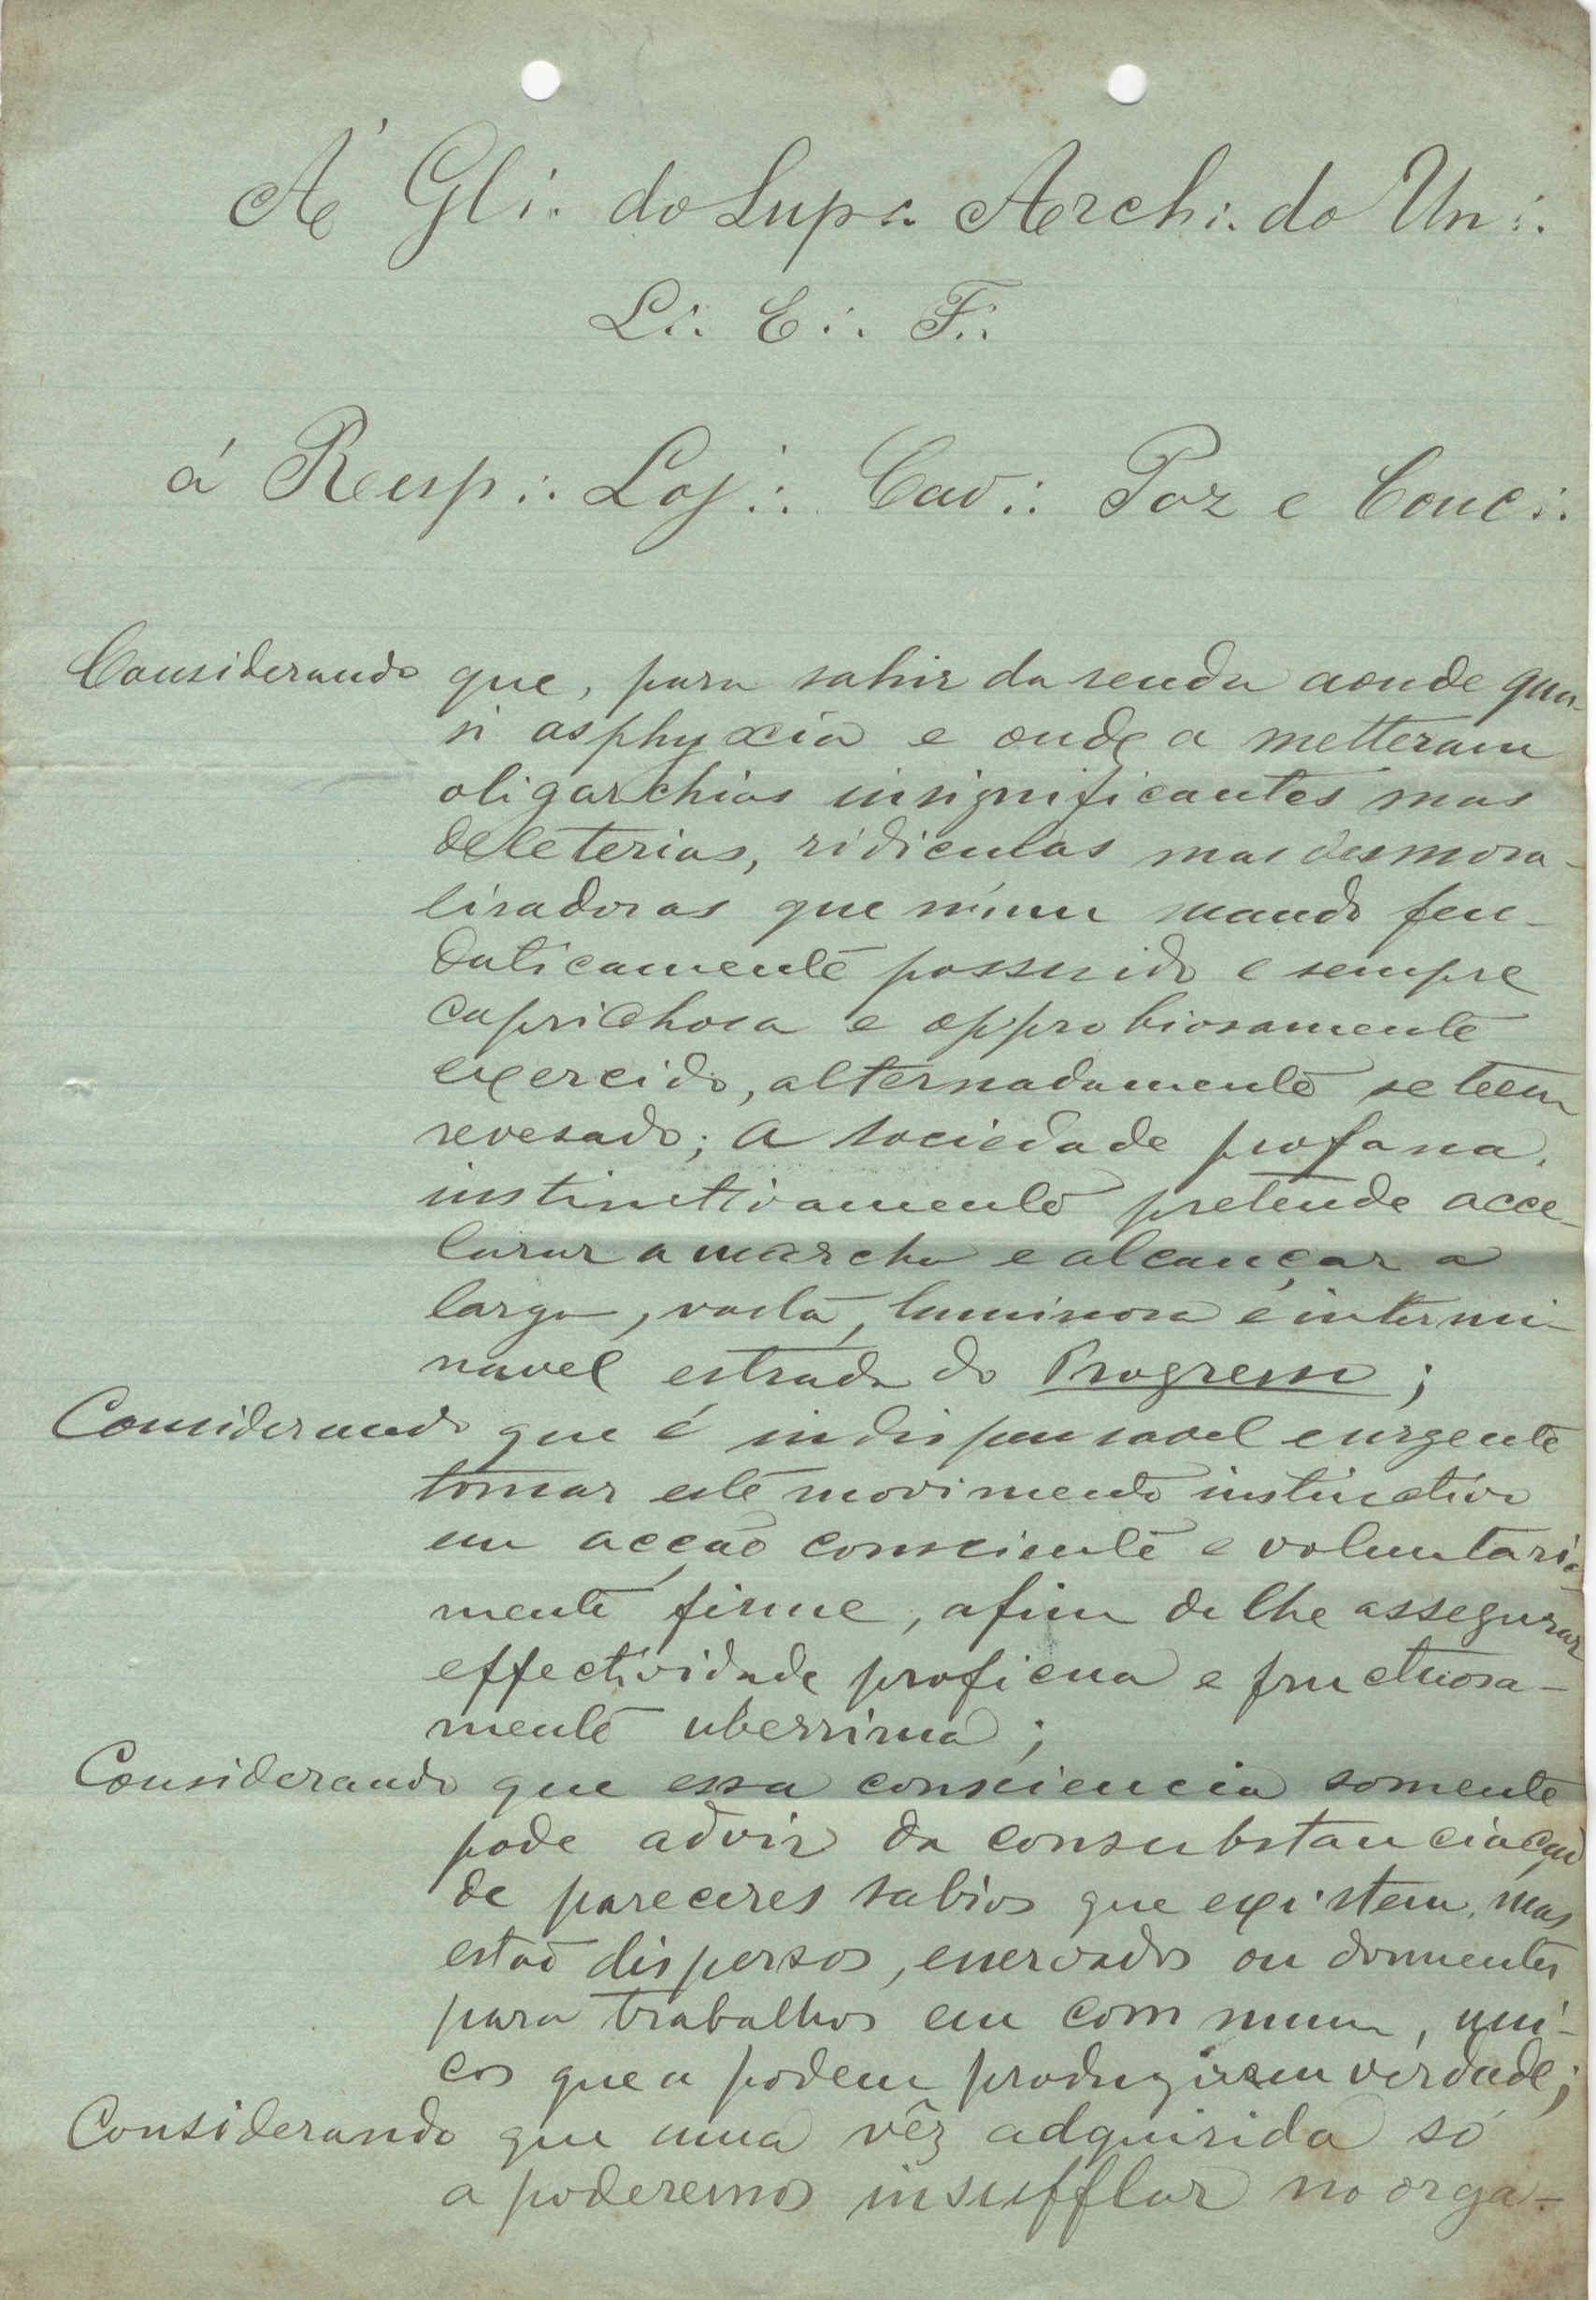 Á Gl∴ do Sup∴ Arch∴ do Un∴
L∴ E∴ F∴
á Resp∴ Loj∴ Cav∴ Paz e Conc∴
Considerando que, para sahir da senda aonde qua-
si asphyxia e onde a metteram
oligarchias insignificantes mas
deleterias, ridiculas mas desmora-
lisadoras que n'um mando feu-
daticamente possuido e sempre
caprichosa e opprobiosamente
exercido, alternadamente se teem
revesado; a sociedade profana,
instinctivamente pretende acce-
larar a marcha e alcançar a
larga, vasta, luminosa e intermi-
navel estrada do Progresso;
Considerando que é indispensavel e urgente
tornar este movimento instinctivo
em acção consciente e voluntaria-
mente firme, afim de lhe assegurar
effectividade proficua e fructuosa-
mente uberrima;
Considerando que essa consciencia somente
pode advir da consubstanciação
de pareceres sabios que existem, mas
estão dispersos, enervados ou dormentes
para trabalhos em commum, uni-
cos que a podem produzir em verdade;
Considerando que uma vêz adquirida só
a poderemos insufflar no orga-